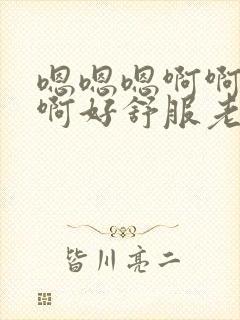 嗯嗯嗯啊啊
啊好舒服老
皆川亮二